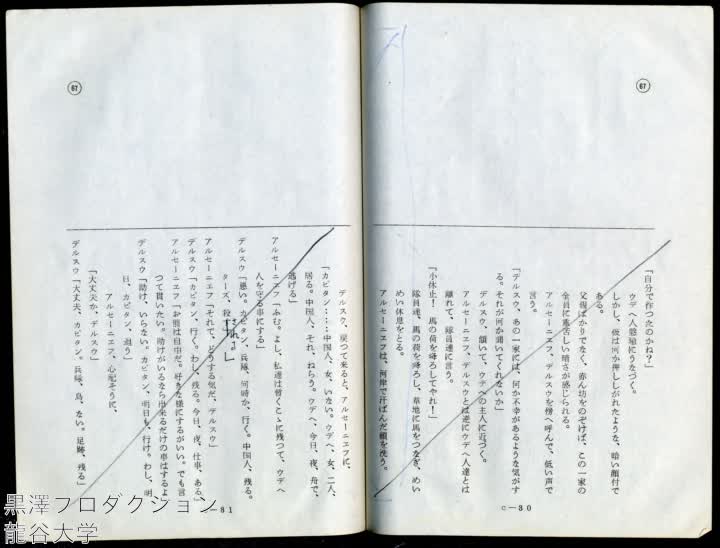 67
「自分で作つたのかね?」
ウデヘ人慇懃にうなづく。
しかし、彼は何か押ししがれたような、暗い顔付で
ある。
父親ばかりでなく、赤ん坊をのぞけば、この一家の
全員に重苦しい暗さが感じられる。
アルセーニエフ、デルスウを傍へ呼んで、低い声で
言う。
「デルスウ、あの一家には、何か不幸があるような気がす
る。それが何か聞いてくれないか」
デルスウ、頷いて、ウデヘの主人に近づく。
アルセーニエフ、デルスウとは逆にウデヘ人達とは
離れて、隊員達に言う。
「小休止! 馬の荷を降ろしてやれ!」
隊員達、馬の荷を降ろし、草地に馬をつなぎ、めい
めい休息をとる。
アルセーニエフは、河岸で汗ばんだ顔を洗う。
c-80
67
デルスウ、戻つて来ると、アルセーニエフに、
「カピタン……中国人、女、いない。ウデヘ、女、二人、
居る。中国人、それ、ねらう。ウデヘ、今日、夜、舟で、
逃げる」
アルセーニエフ「ふむ。よし、私達は暫くこゝに残つて、ウデヘ
人を守る事にする」
デルスウ「悪い。カピタン、兵隊、何時か、行く。中国人、残る。
ターズ、殺される」
アルセーニエフ「それで、どうする気だ、デルスウ」
デルスウ「カピタン、行く。わし、残る。今日、夜、仕事、ある」
アルセーニエフ「お前は自由だ。好きな様にするがいい。でも言
つて貰いたい。助けがいるなら出来るだけの事はするよ」
デルスウ「助け、いらない。カピタン、明日も、行け。わし、明
日、カピタン、追う」
アルセーニエフ、心配そうに、
「大丈夫か、デルスウ」
デルスウ「大丈夫、カピタン、兵隊、鳥、ない。足跡、残る」
-81
黒澤プロダクション
龍谷大学